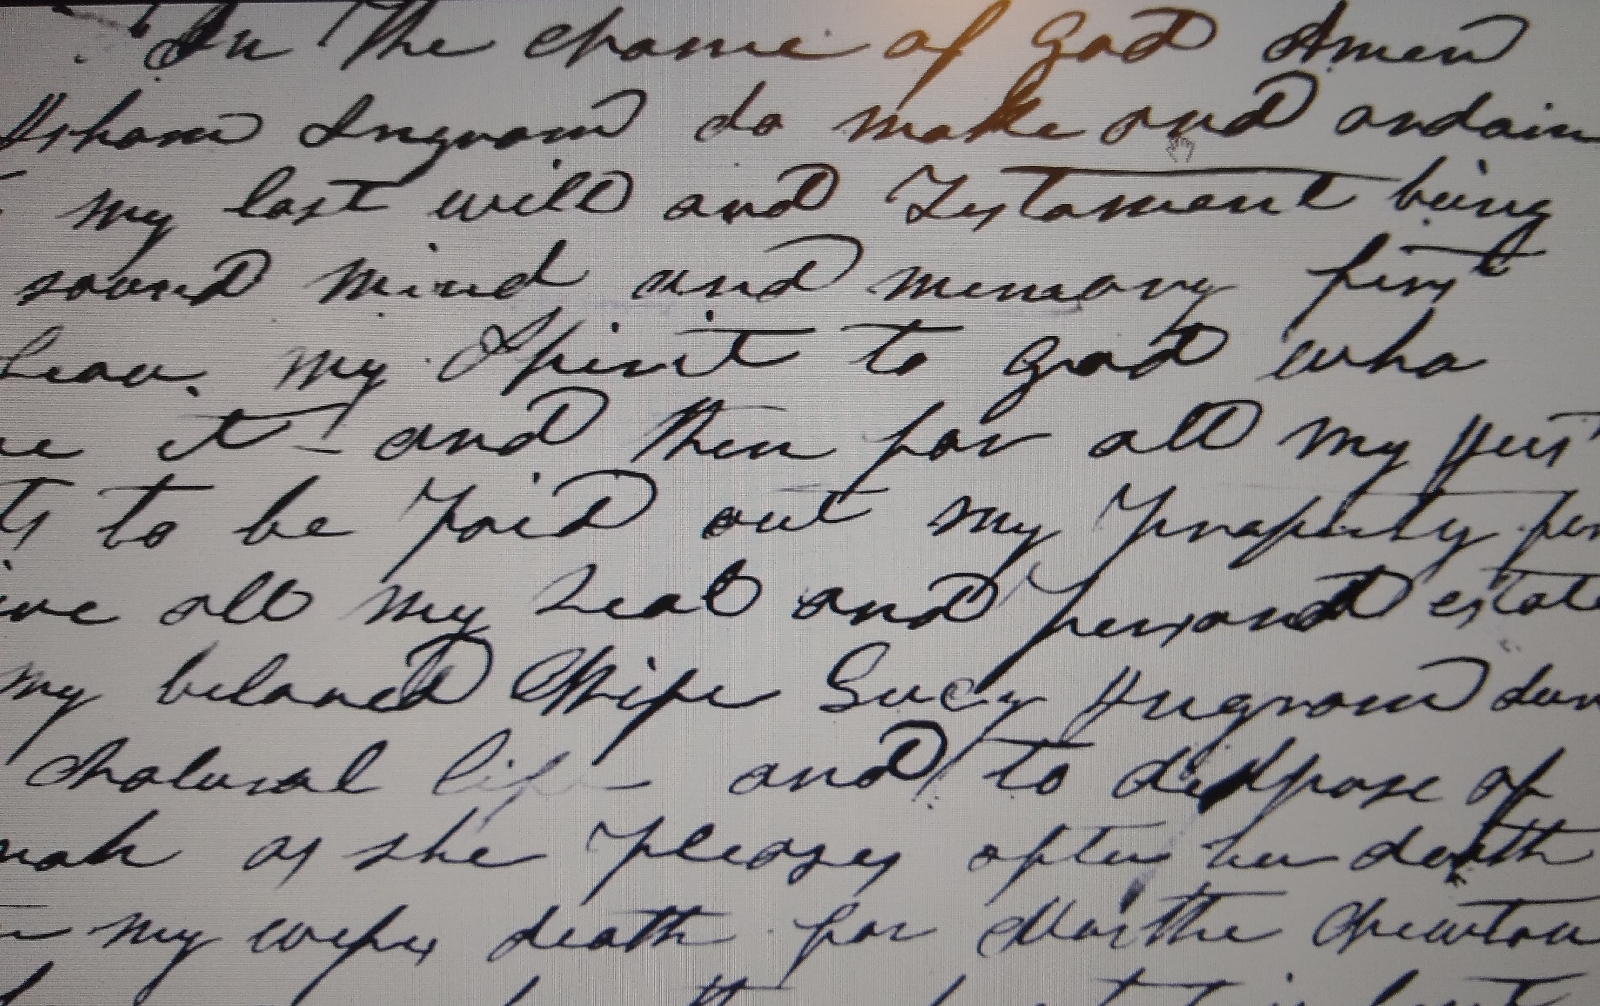 In the Name of God Amen
Isham Ingram do make and ordain
my last will and Testament being
sound mind and memory first
leave my Spirit to God who
it and then for all my just
ts to be paid out my Property
ive all my Real and personal estate
my beloved Wife Lucy Ingram dur
Natural life and to dispose of
as she pleases after her death
my wifes death for Martha Newton